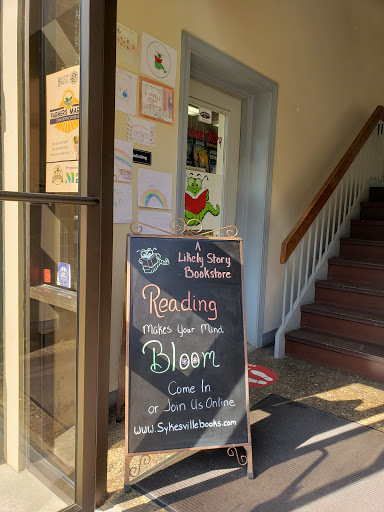 FARMERS MAR
A
Likely Story
Bookstore
Reading
Makes Your Mind
Bloom
Come In
or Join Us Online
www.Sykesvillebooks.com